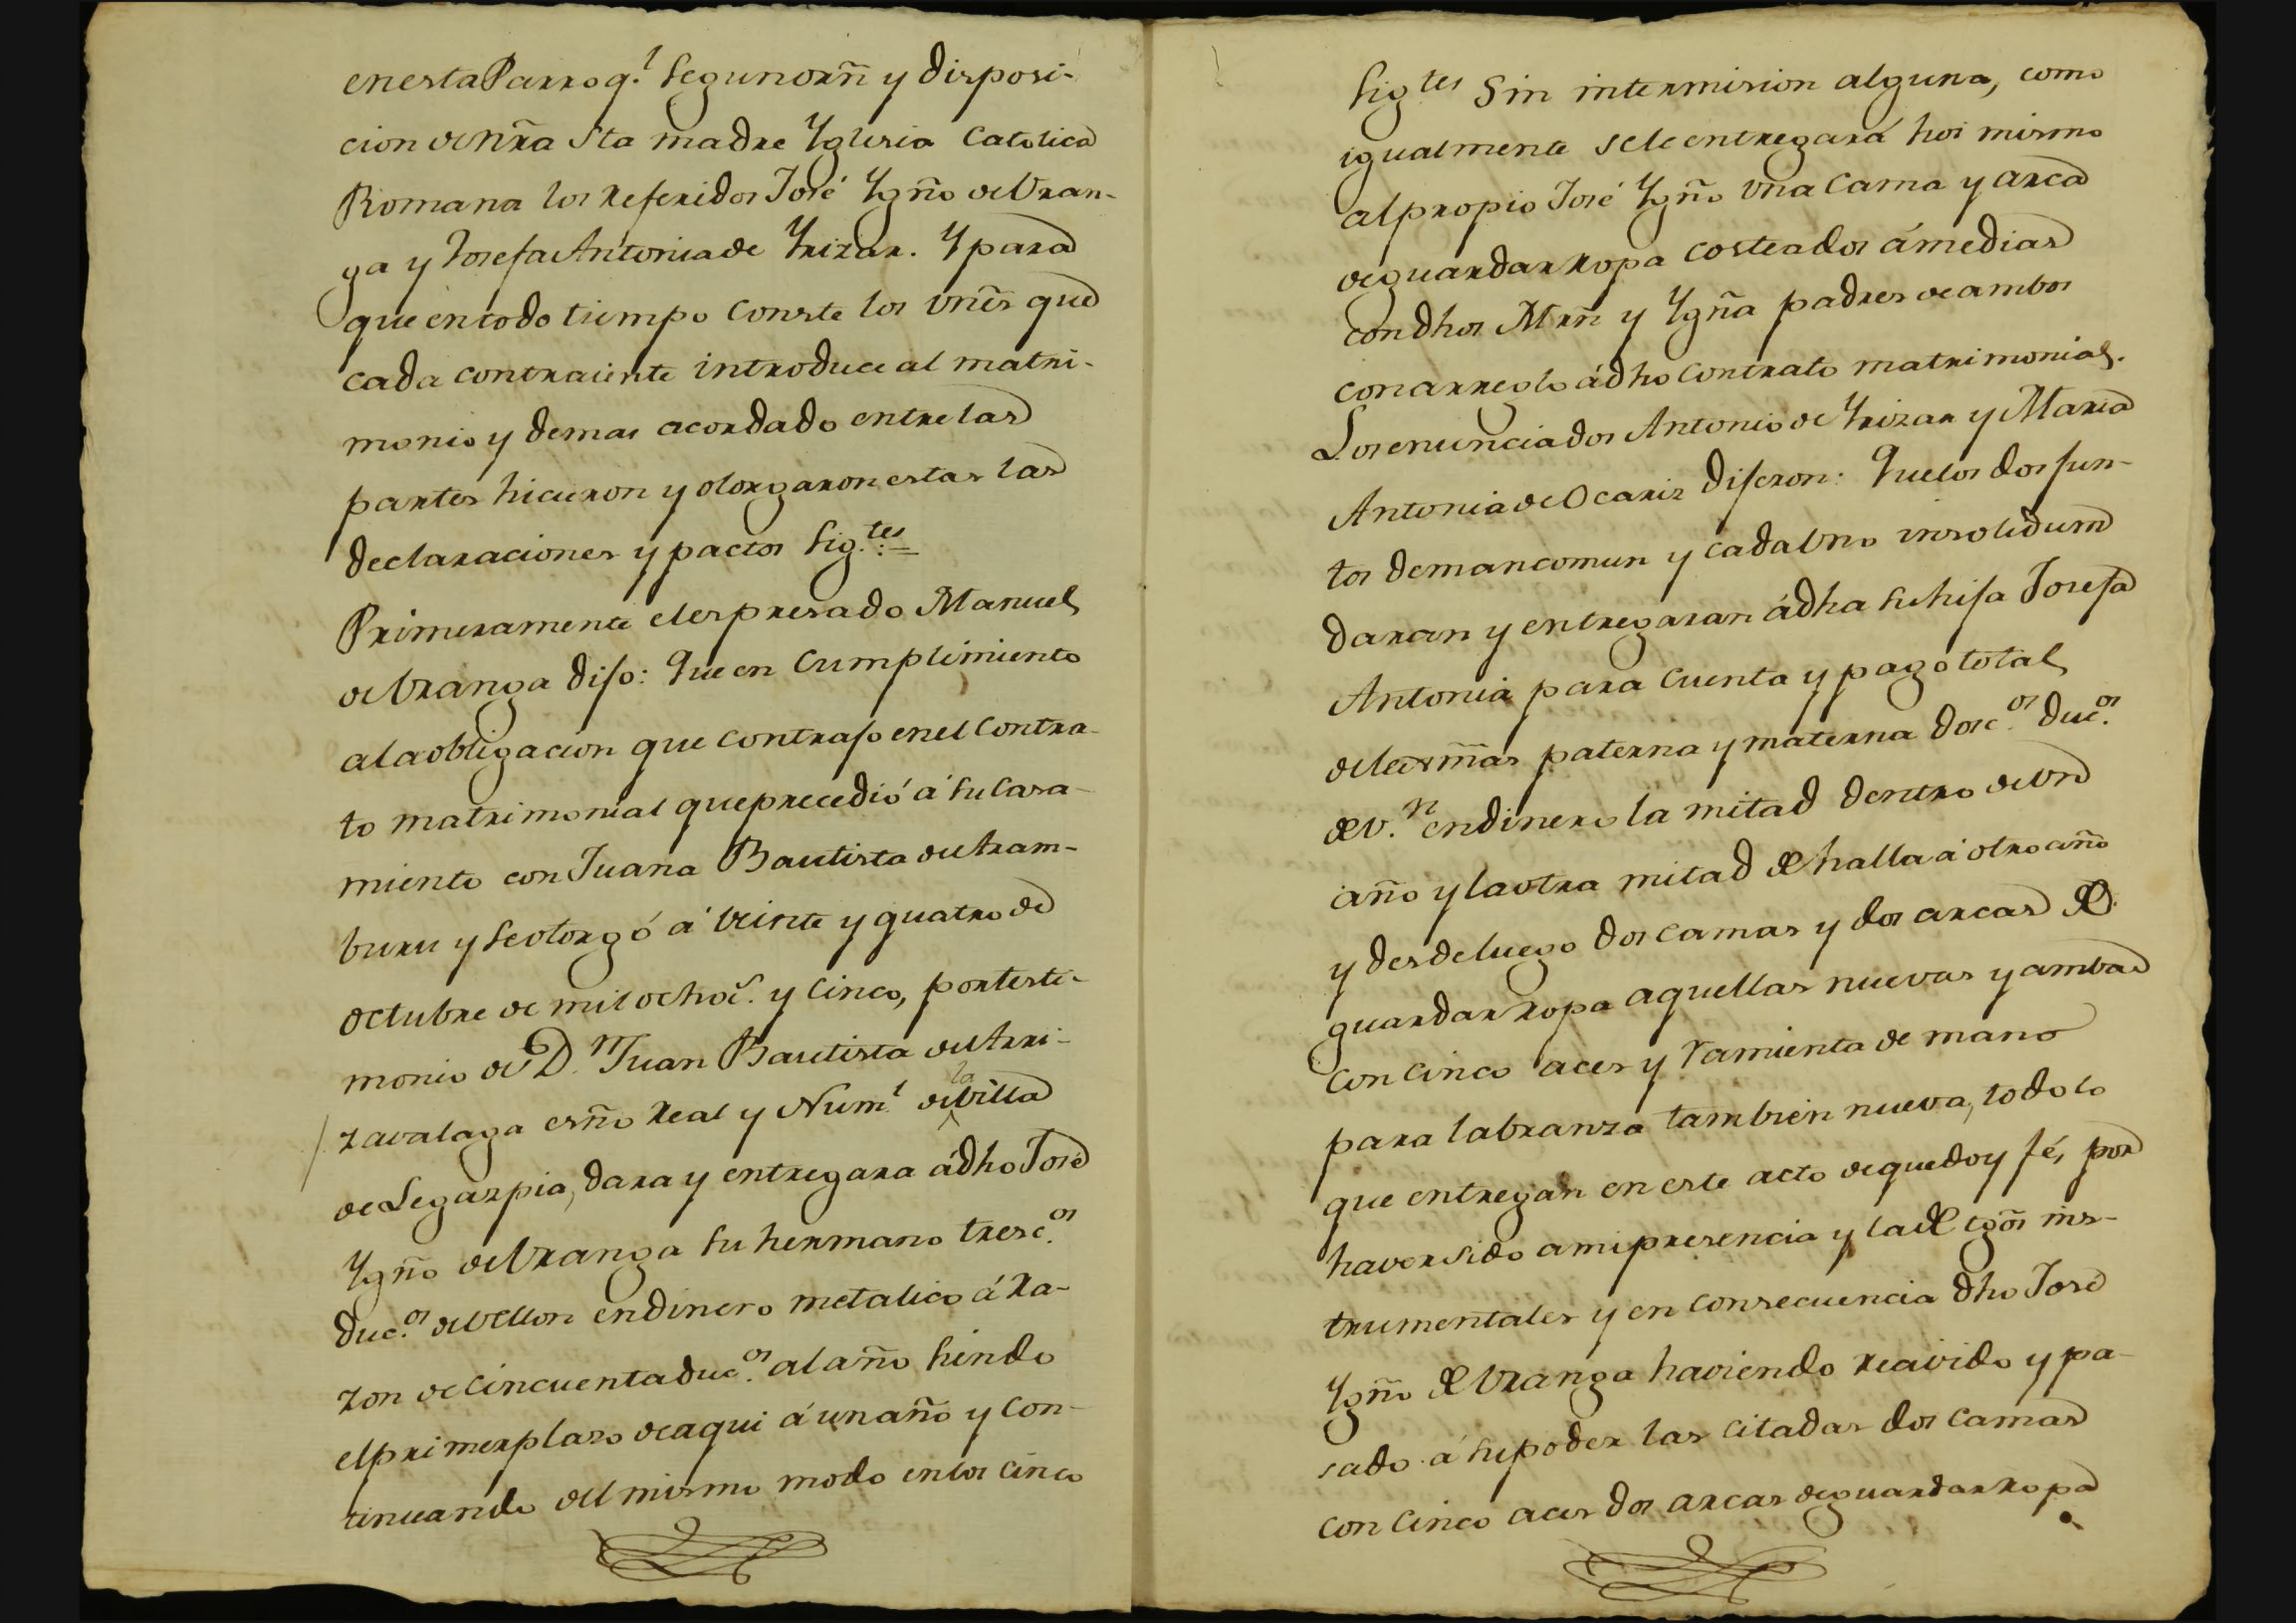 en esta Parroq.l segun orñ y disposi-
cion de nra Sta madre Yglesia Catolica
Romana los referidos José Ygño de Uran-
ga y Josefa Antonia de Yrizar. Y para
que en todo tiempo conste los vnes que
cada contraiente introduce al matri-
monio y demas acordado entre las
partes hicieron y otorgaron estas las
declaraciones y pactos sig.tes =
Primeramente el espresado Manuel
de Uranga dijo: Que en cumplimiento
a la obligacion que contrajo en el contra-
to matrimonial que precedió á su casa-
miento con Juana Bautista de Aram-
buru y se otorgó á veinte y quatro de
octubre de mil ochoc.s y cinco, por testi-
monio de D.n Juan Bautista de Arri-
zavalaga esño Real y Num.l de la villa
de Legazpia, dara y entregara á dho José
Ygño de Uranga su hermano tresc.os
duc.os de vellon en dinero metalico á ra-
zon de cincuenta duc.os al año siendo
el primer plazo de aqui á un año y con-
tinuando del mismo modo en los cinco
sig.tes sin intermision alguna, como
igualmente se le entregará hoi mismo
al propio José Ygño una cama y arca
de guardar ropa costeados á medias
con dhos Mrñ y Ygña padres de ambos
con arreglo á dho contrato matrimonial.
Los enunciados Antonio de Yrizar y Maria
Antonia de Ocariz dijeron: Que los dos jun-
tos de mancomun y cada uno insolidum
daran y entregaran á dha su hija Josefa
Antonia para cuenta y pago total
de lexmas paterna y materna dosc.os duc.os
de v.n en dinero la mitad dentro de un
año y la otra mitad de halla á otro año
y desde luego dos camas y dos arcas de
guardar ropa aquellas nuevas y ambas
con cinco aces y ramienta de mano
para labranza tambien nueva, todo lo
que entregan en este acto de que doy fé, por
haver sido a mi presencia y la de tgos ins-
trumentales y en consecuencia dho José
Ygño de Uranga haviendo recivido y pa-
sado á su poder las citadas dos camas
con cinco aces dos arcas de guardar ropa